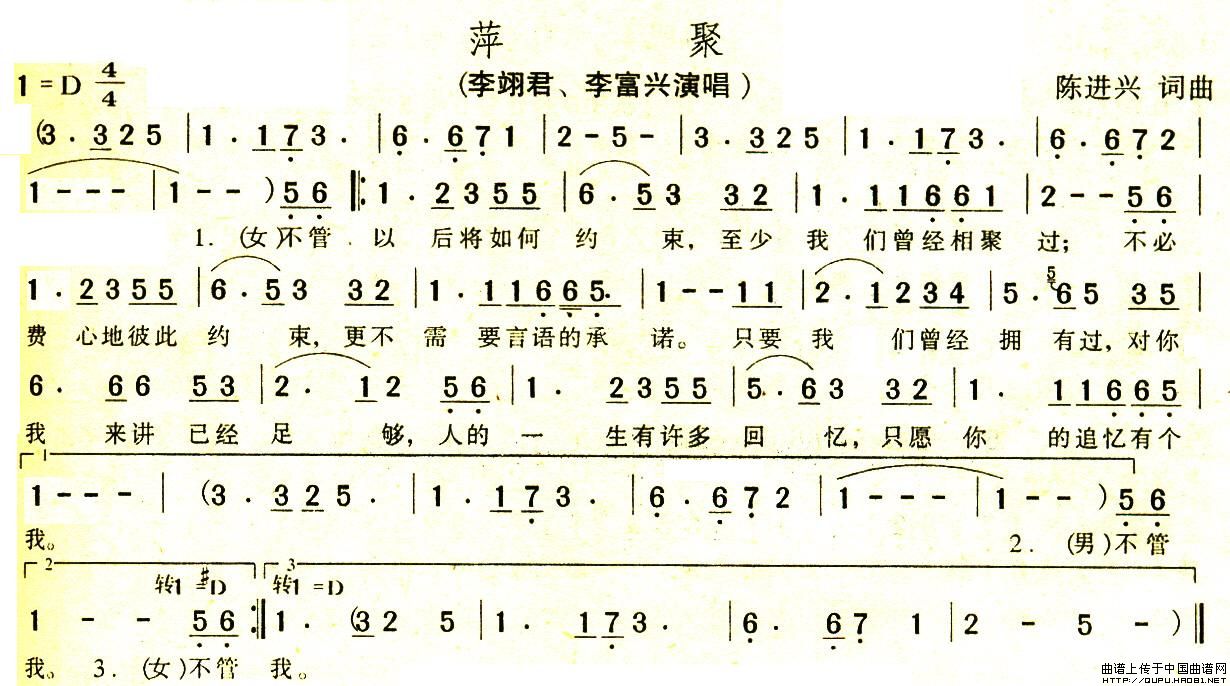 萍 聚
1=D 4/4
(李翊君、李富兴演唱)
陈进兴 词曲
(3 . 3 2 5 | 1 . 1 7 3 . | 6 . 6 7 1 | 2 - 5 - | 3 . 3 2 5 | 1 . 1 7 3 . | 6 . 6 7 2 |
1 - - - | 1 - - ) 5 6 ‖: 1 . 2 3 5 5 | 6 . 5 3 3 2 | 1 . 1 1 6 6 1 | 2 - - 5 6 |
1. (女)不管 以 后将如何 约 束, 至少 我 们曾经相聚 过; 不必
1 . 2 3 5 5 | 6 . 5 3 3 2 | 1 . 1 1 6 6 5 . | 1 - - 1 1 | 2 . 1 2 3 4 | 5 . 5 6 5 3 5 |
费 心地彼此 约 束, 更不 需 要言语的承 诺。 只要 我 们曾经 拥 有过, 对你
6 . 6 6 5 3 | 2 . 1 2 5 6 | 1 . 2 3 5 5 | 5 . 6 3 3 2 | 1 . 1 1 6 6 5 |
我 来讲 已经 足 够, 人的 一 生有许多 回 忆, 只愿 你 的追忆有个
1
1 - - - | (3 . 3 2 5 . | 1 . 1 7 3 . | 6 . 6 7 2 | 1 - - - | 1 - - ) 5 6
我。 2. (男)不管
2 转1=#D 3 转1=D
1 - - 5 6 :‖ 1 . (3 2 5 | 1 . 1 7 3 . | 6 . 6 7 1 | 2 - 5 - ) ‖
我。 3. (女)不管 我。
曲谱上传于中国曲谱网
HTTP://QUPU.HAO81.NET